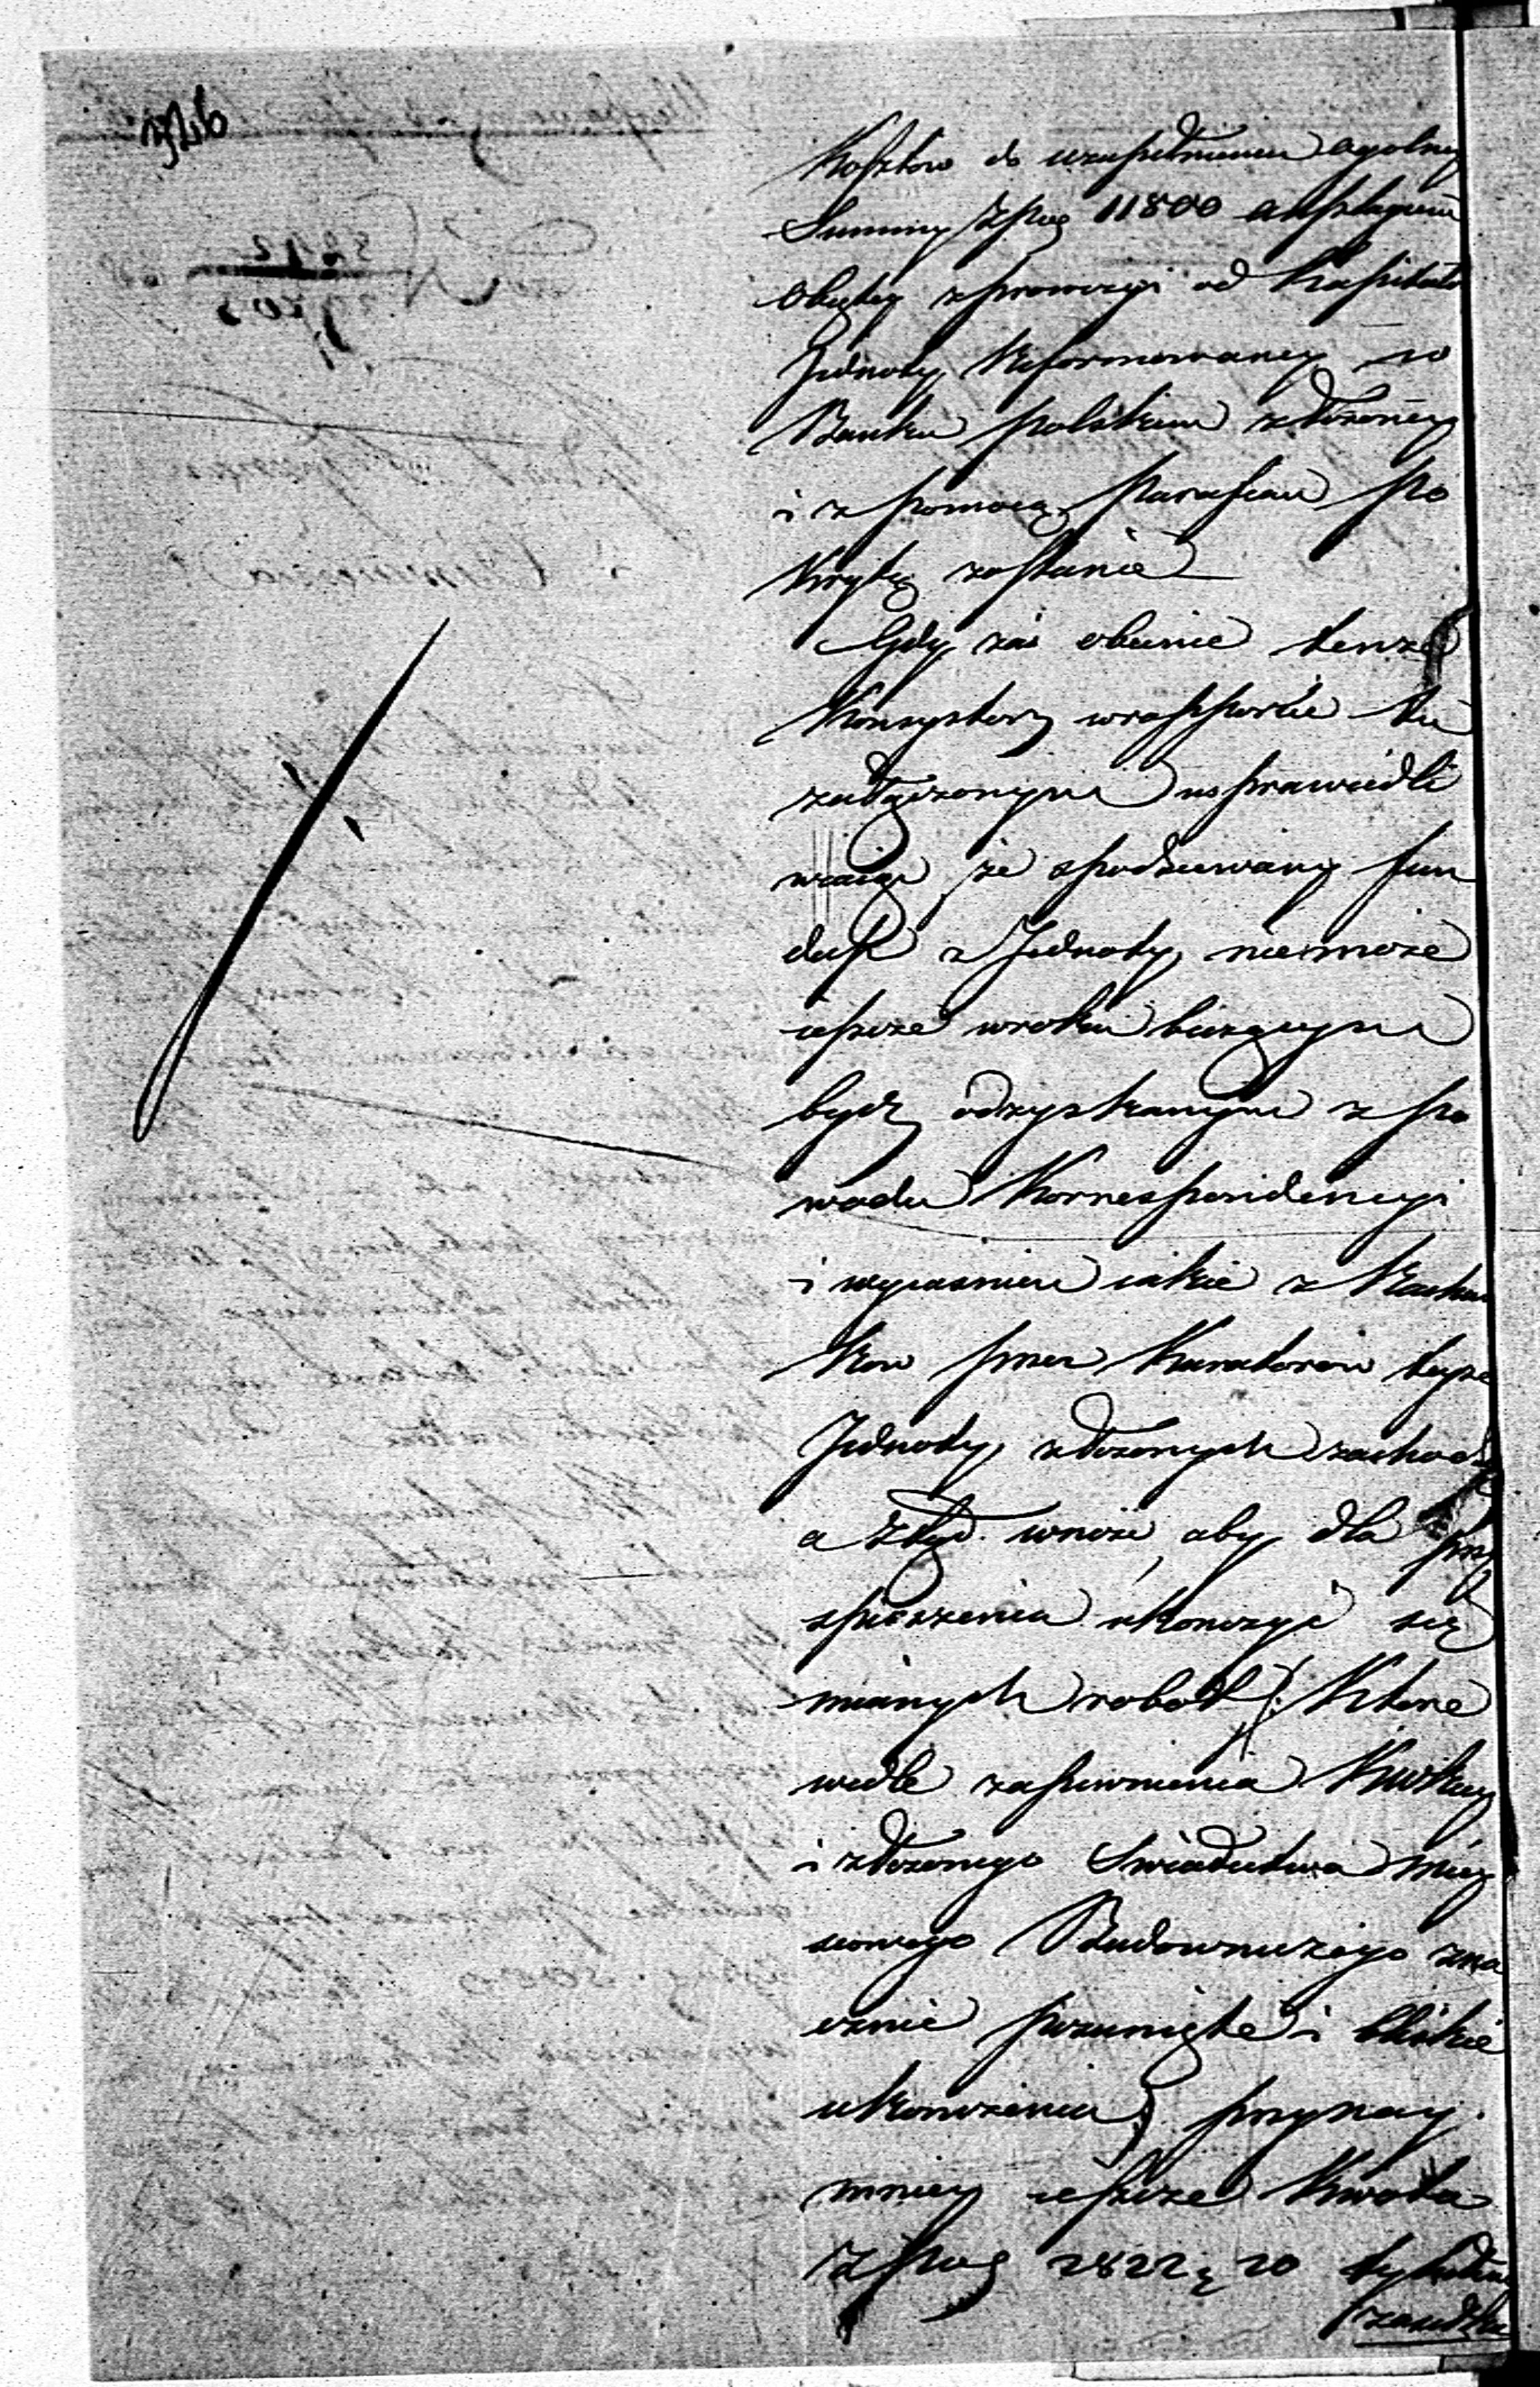 Kosztów do uzupełnienia ogolney
Summy Złpog 11800 anszlagiem
obiętey z prowizyi od Kapitału
Jednoty Reformowaney w
Banku polskim złożoney
i z pomocą Parafian po
krytą zostanie
Gdy zaś obecnie tenże
Konsystorz w rapporcie tu
załączonym usprawiedli
wiaiąc że spodziewany fun
dusz z Jednoty niemoże
ieszcze w roku bieżącym
bydz odzyskanym z po
wodu Korrespondencyi
i wyiasnien iakie z Rachun
kow przez Kuratorów teyże
Jednoty złożonych zachodzą
a ztąd wnosi aby dla przy
spieszenia ukonczyć się
mianych robot (: które
wedle zapewnienia
i złożonego Swiadectwa Miey
scowego Budowniczego zna
cznie posunięte i bliskie
ukonczenia :) przynay
mniey ieszcze Kwota
Złpog 2822 g 20 tytułem